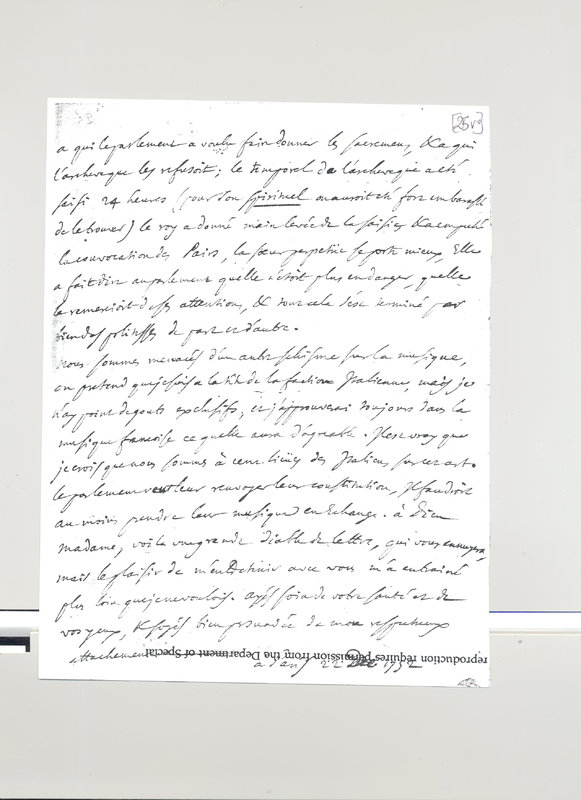 25 v°
a qui le parlement a voulu faire donner les sacremens, & a qui
l'archeveque les refusoit; le temporel de l'archeveque a eté
saisi 24 heures (pour son spirituel on auroit eté fort embarassé
de le trouver) le roy a donné main levée de la saisie, & a empeché
la convocation des Pairs, la sœur perpetue se porte mieux. Elle
a fait dire au parlement quelle n'étoit plus en danger, quelle
le remercioit de ses attentions, & tout cela s'est terminé par
bien des politesses de part et d'autre.
nous sommes menacés d'un autre schisme sur la musique,
on pretend que je suis a la tête de la faction Italienne, mais je
n'ay point de gouts exclusifs, et j'approuverai toujours dans la
musique francoise ce quelle aura d'agreable. Il est vray que
je crois que nous sommes à cent lieües des Italiens sur cet art.
le parlement veut leur renvoyer leur constitution, Il faudroit
au moins prendre leur musique en Echange. à Dieu
madame, voila une grande diable de lettre, qui vous ennuyera,
mais le plaisir de m'entretenir avec vous m'a entrainé
plus loin que je ne voulois. ayés soin de votre santé et de
vos yeux, & soyés bien persuadée de mon respectueux
attachement
a Paris 22 Dec 1752
reproduction requires permission from the Department of Special